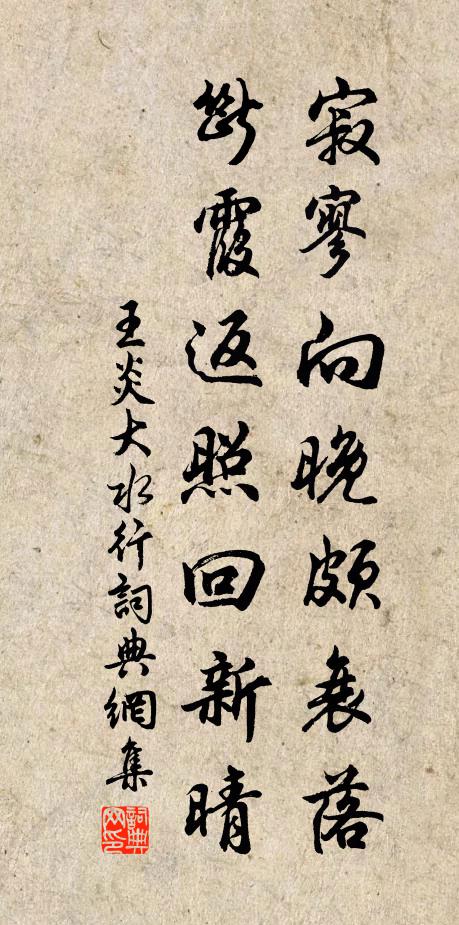 寂寥向晚頗衰落
斷霞返照回新晴
王炎大水行詞典網集
詞典網印